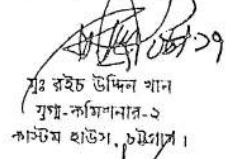 মুঃ রইচ উদ্দিন খান
যুগ্ম-কমিশনার-২
কাস্টম হাউস, চট্টগ্রাম।